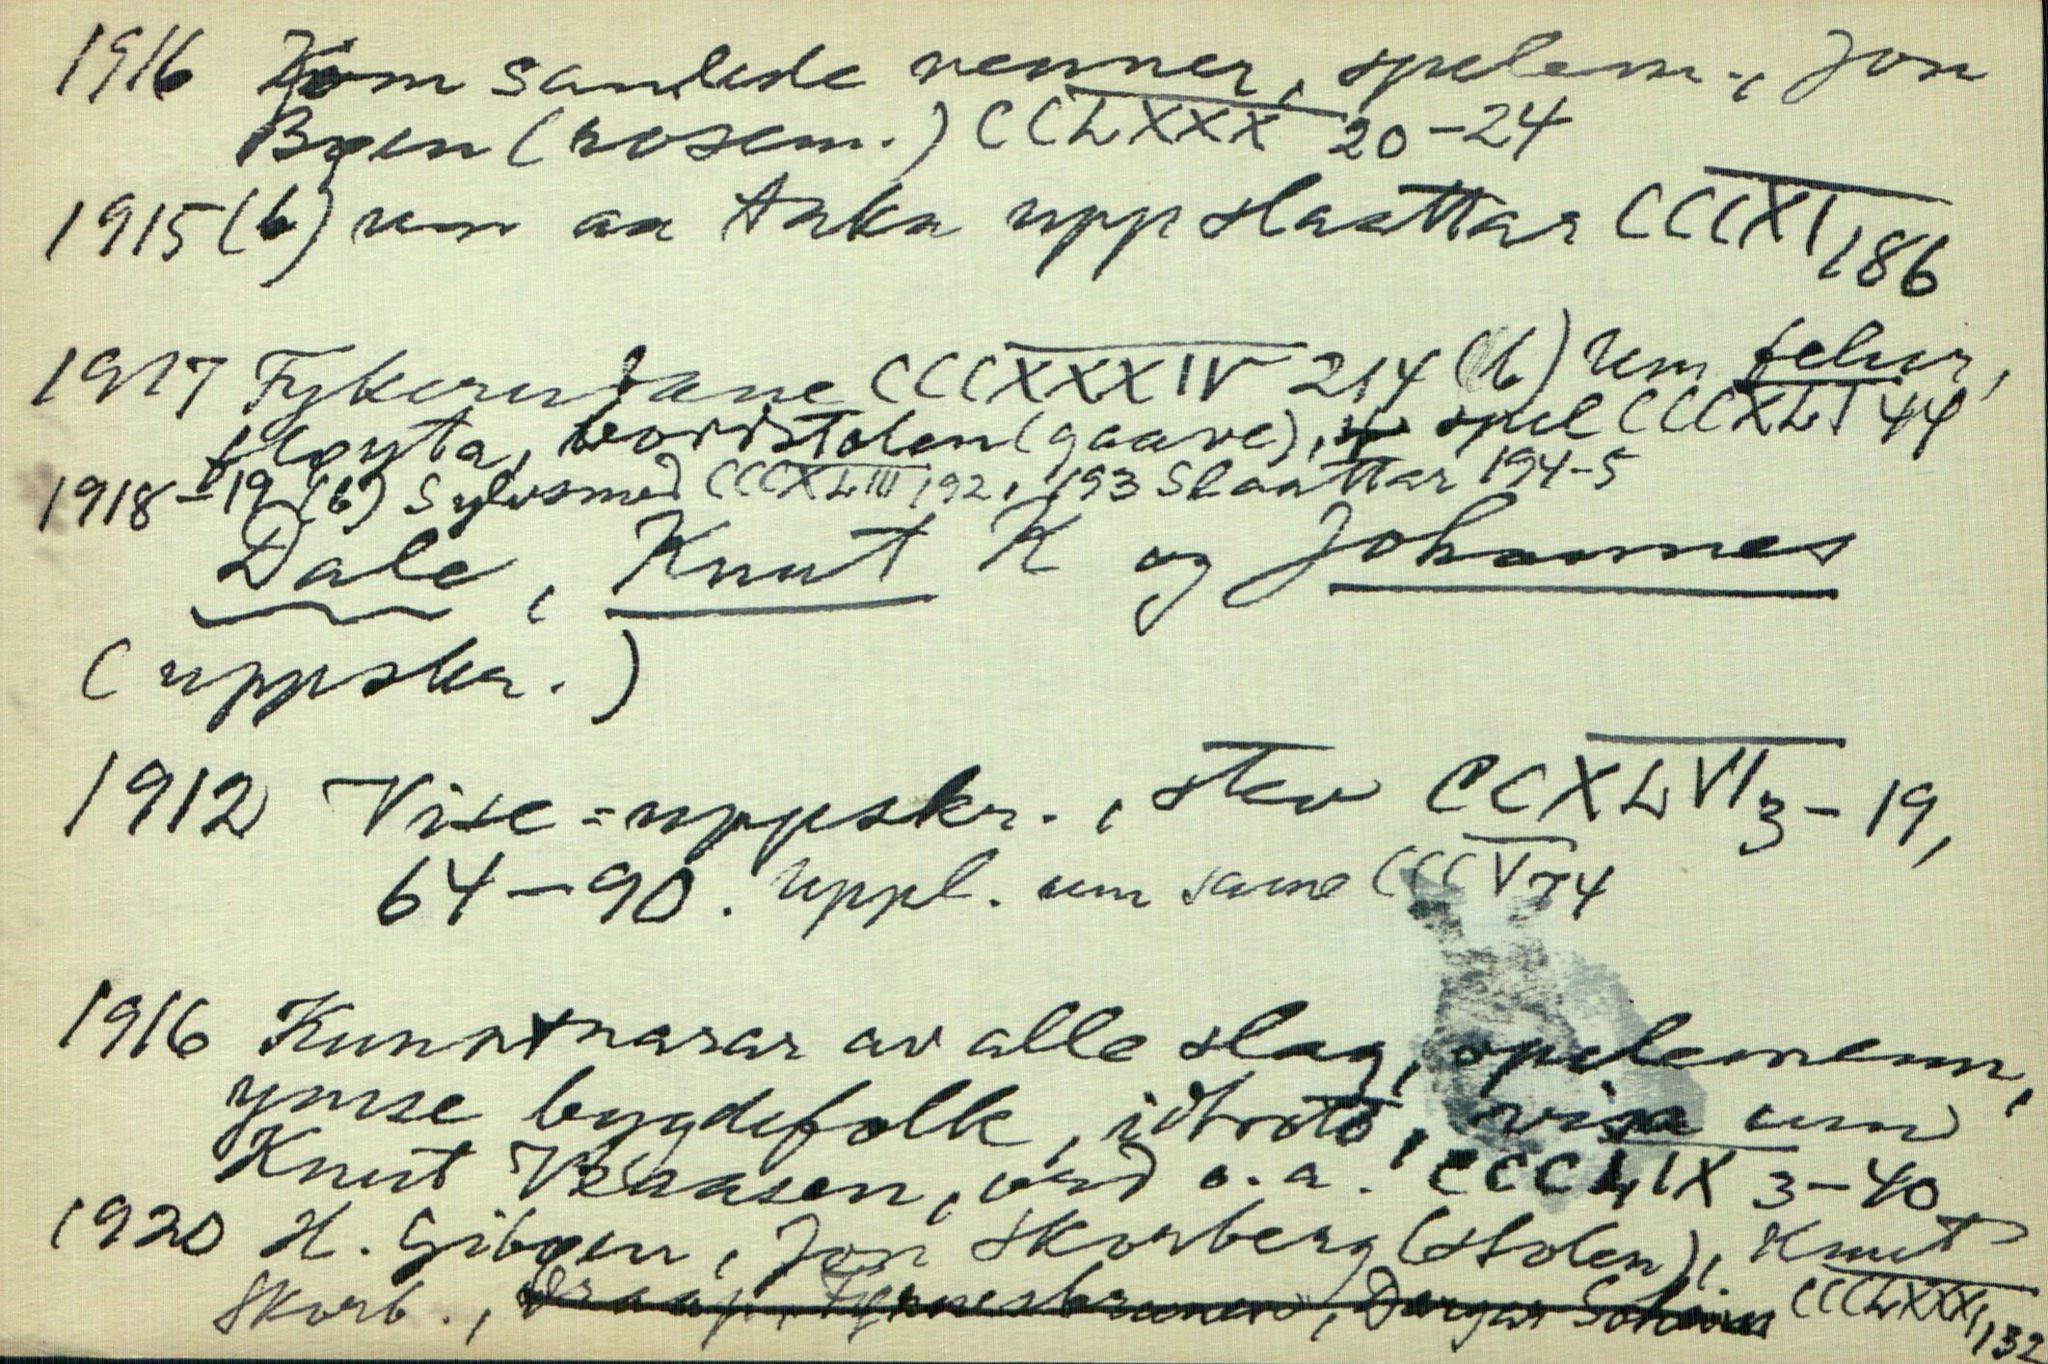 1916 Kom samlede venner, spelem., Jon
Bøen (rosem.) CCLXXX 20-24
1915 (b) um aa taka uppslaattar CCCXI 186
1917 CCCXXXIV 214 (b) Um felur,
fløyta, bordstolen (gaave), spel CCCXLI 44
1918-19 (b) Sylvsmed CCCXLIII 192, 193 Slaattar 194-5
Dale, Knut K og Johannes
(uppskr.)
1912 Vise-uppskr., stev CCXLVI 3-19,
64-90. Uppl. um same CCCV 74
1916 Kunstnarar av alle slag, spelemenn,
ymse bygdefolk, idrott, visa um
Knut Vraasen, ord o.a. CCCLIX 3-40
1920 H. Gibøen, Jon Skorberg (stolen), Knut
Skorb., CCCLXXXI 132